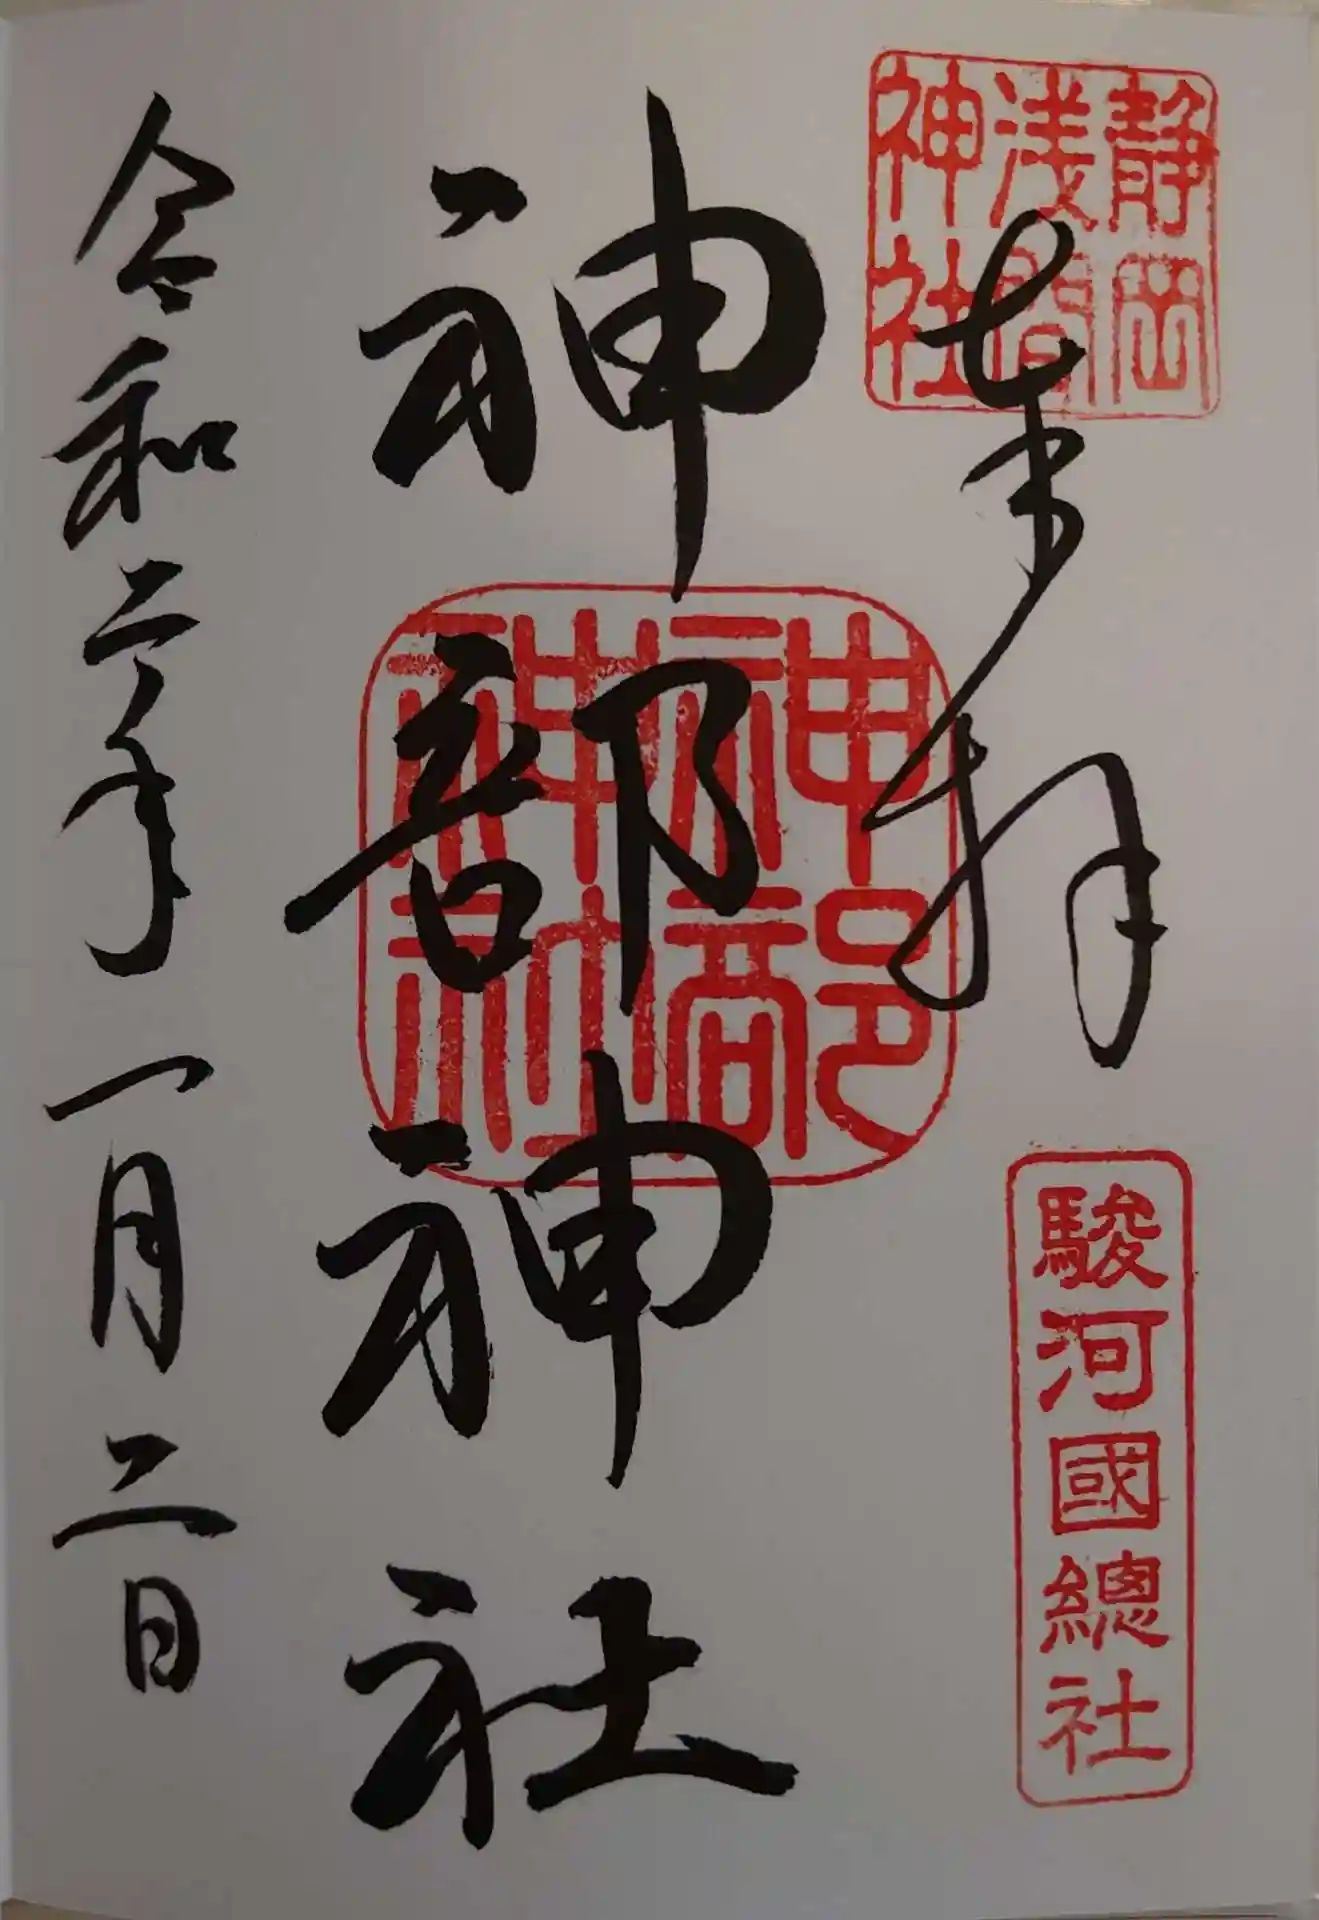 静岡
浅間
神社
奉拝
駿河國總社
神部神社
神部
神社
令和二年一月二日